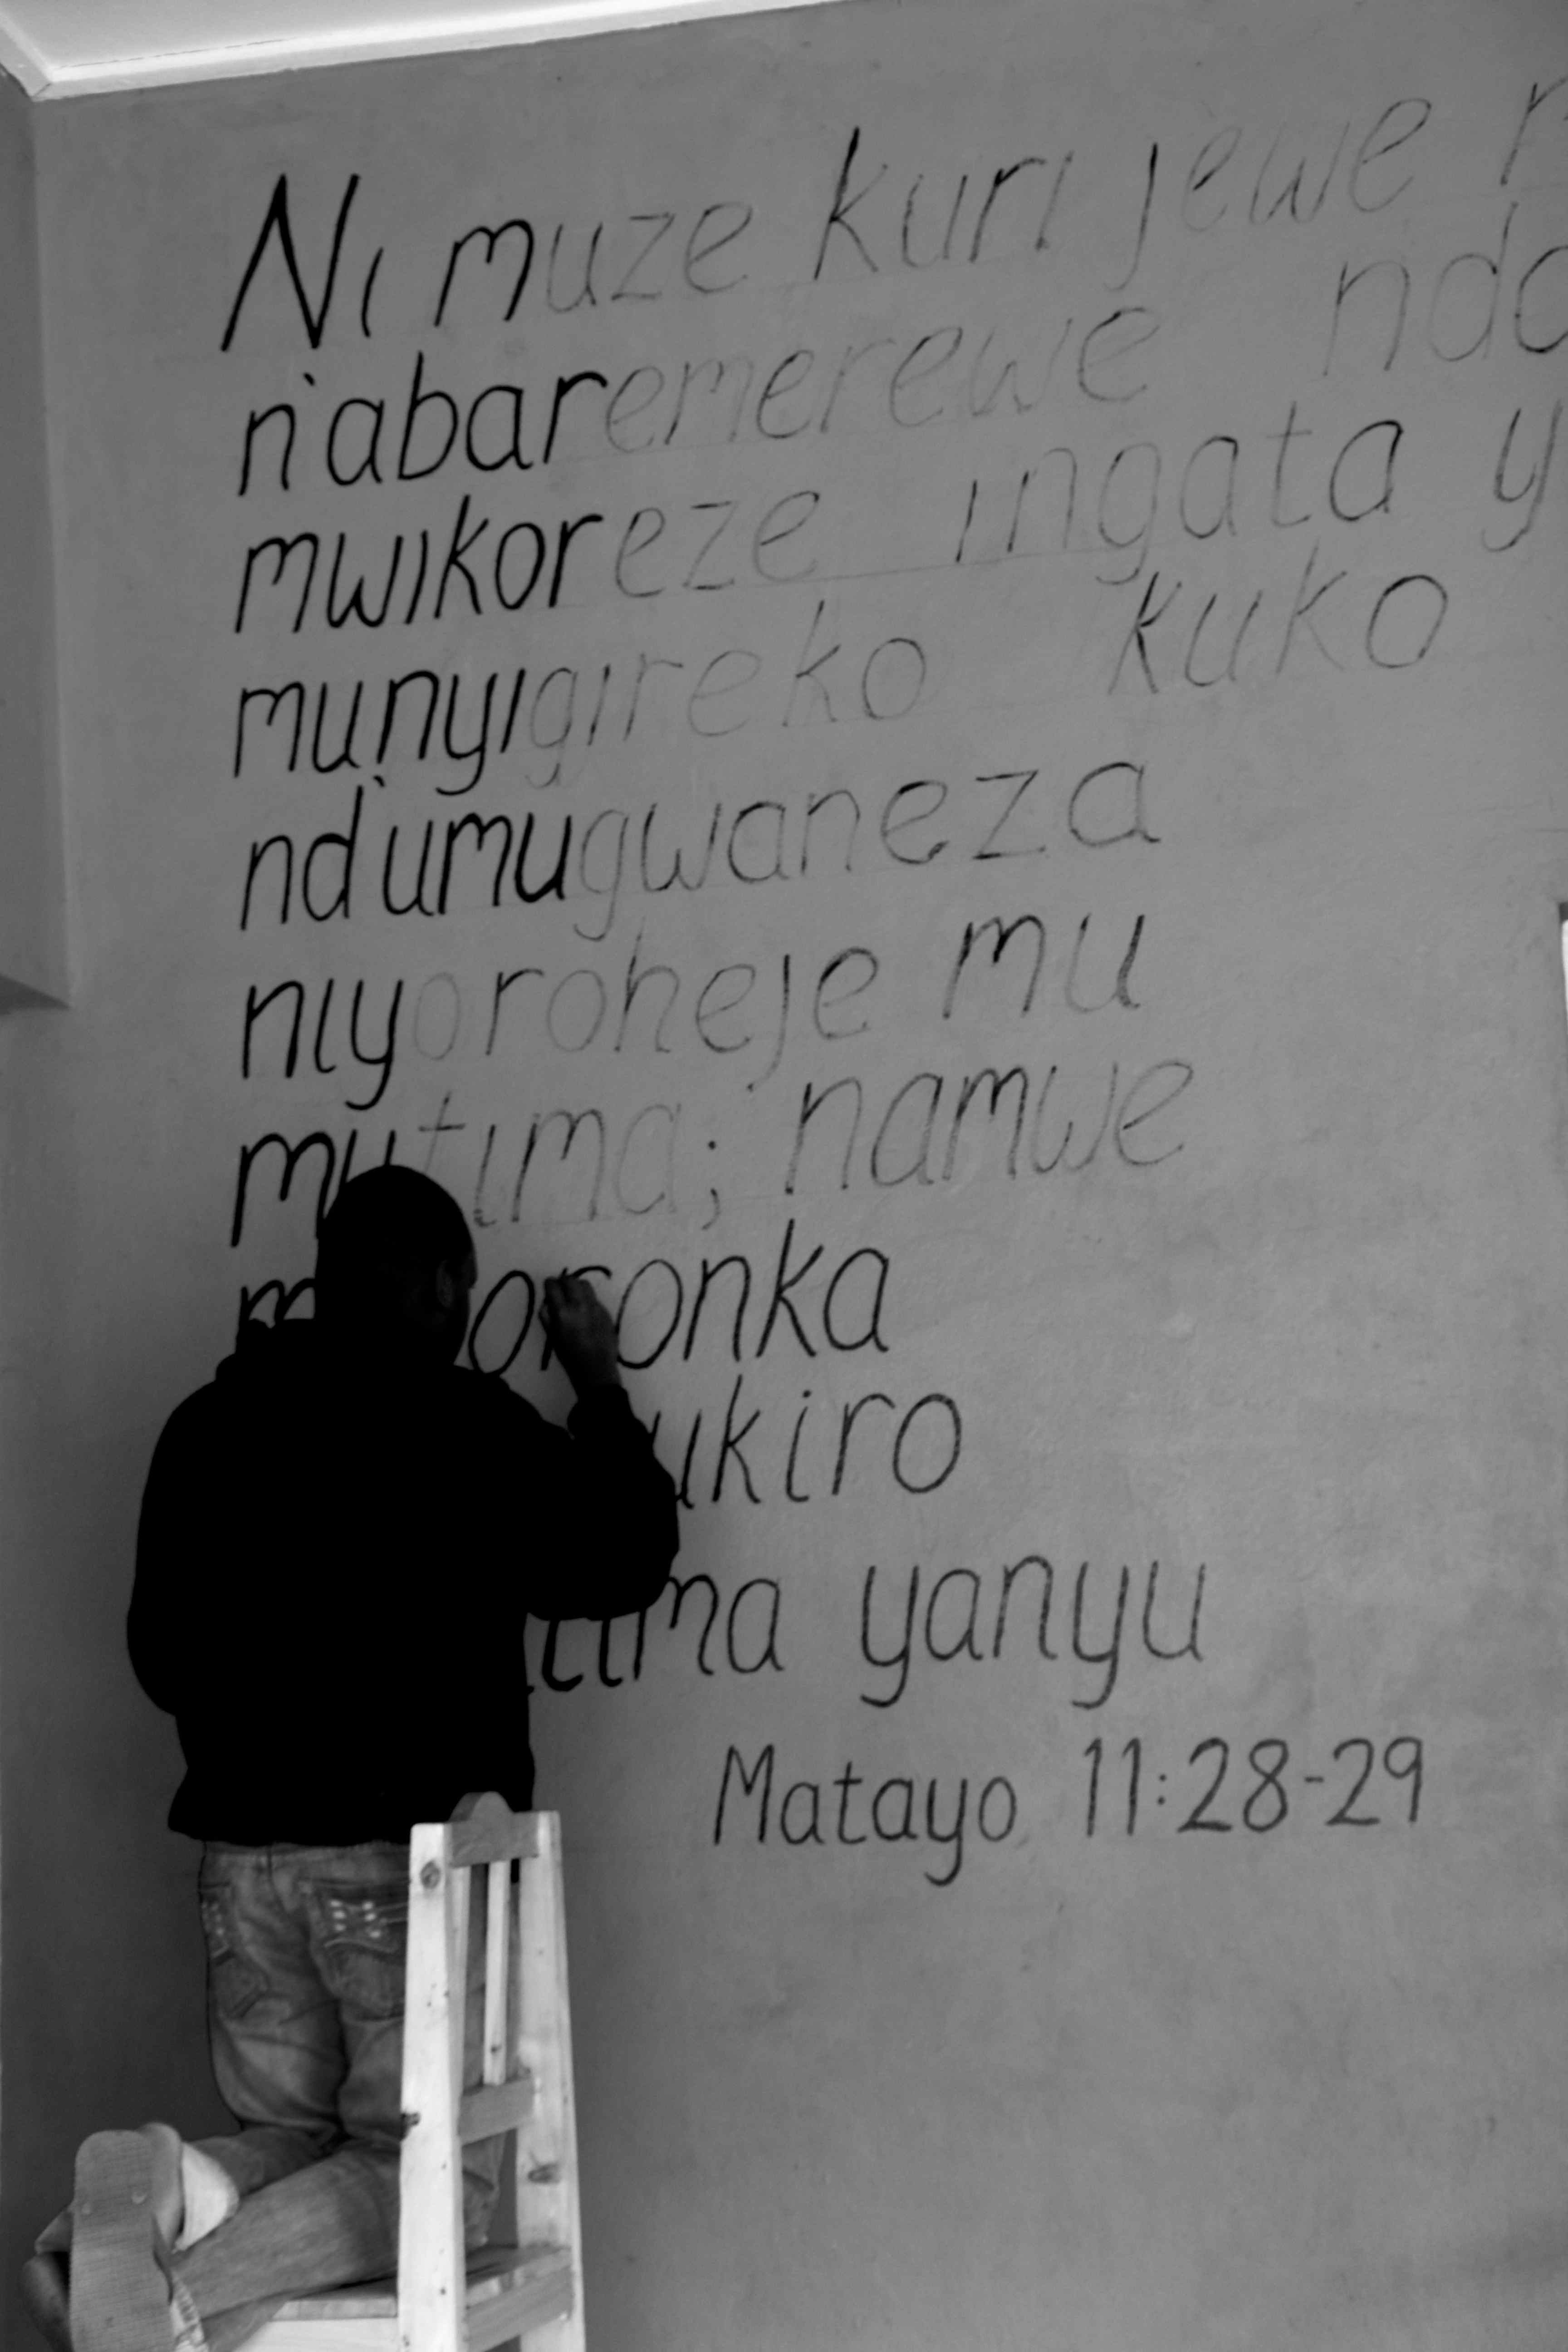 Ni muze kuri jewe
n'abaremerewe
mwikoreze ingata
munyigireko kuko
nd'umugwaneza
niyoroheje mu
mutima; namwe
yanyu
Matayo 11:28-29